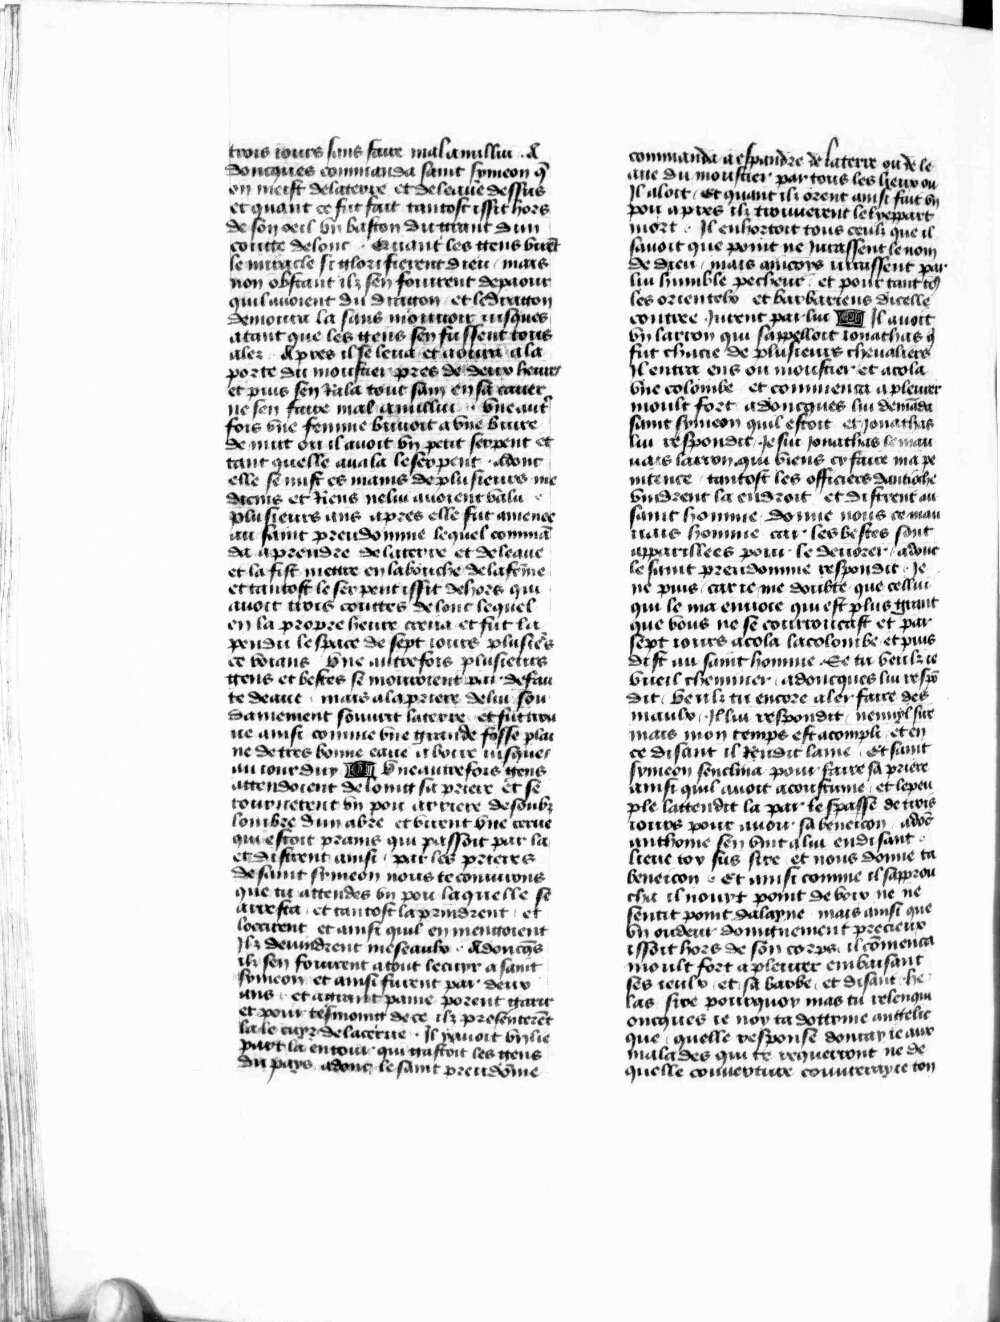 trois iours sans faire mal a nulluy . Et
doncques commanda saint symeon q̃
on meist de la terre et de leaue dessus
et quant ce fut fait tantost issit hors
de son oeil vn baston du grant dun
coutte de lonc . Quant les gens virẽt
le miracle si glorifierent dieu . mais
non obstant ilz sen fouirent de paour
quil auoient du dragon . et le dragon
demoura la sans mouuoir iusques
atant que les gens sen fussent tous
alez . Apres il se leua et aoura a la
porte du moustier pres de deux heures
et puis sen rala tout sain en sa cauer
ne sen faire mal a nulluy . vne aut̃
fois vne femme buuoit a vne buire
de nuit ou il auoit vn petit serpent et
tant quelle auala le serpent . adont
elle se mist es mains de plusieurs me
decins et riens ne luy auoient valu .
plusieurs ans apres elle fut amenee
au saint preudomme lequel commã
da a prendre de la terre et de leaue
et la fist mettre en la bouche de la fẽme
et tantost le serpent issit dehors qui
auoit trois couttes de lonc lequel
en la propre heure creua et fut la
pendu lespace de sept iours plusiẽs
ce voians Vne autrefois plusieurs
gens et bestes se mouroient par defau
te deaue . mais a la priere de luy sou
dainement souurit la terre . et fut trou
ue ainsi comme vne grande fosse plai
ne de tres bonne eaue a boire iusques
au iour duy Vne autrefois gens
attendoient de loing sa priere et se
tournerent vn pou arriere desoubz
lombre dun abre et virent vne cerue
qui estoit prains qui passoit par la
et distrent ainsi . par les prieres
de saint symeon nous te coniurons
que tu attendes vn pou laquelle se
arresta . et tantost la prindrent . et
loccirent et ainsi quil en mengoient
ilz deuindrent meseaulx . Adoncq̃s
ilz sen fouirent a tout le cuyr a saint
symeon et ainsi furent par deux
ans . et a grant paine porent garir
et pour tesmoing de ce ilz presenterẽt
la le cuyr de la cerue . Il y auoit vn lie
part la entour qui gastoit les gens
du pays adonc le saint preudõme
commanda a espandre de la terre ou de le
aue du moustier par tous les lieux ou
Il aloit . Et quant ilz orent ainsi fait vn
pou apres ilz trouuerent le lyeppart
mort . Il enhortoit tous ceulx que il
sauoit que point ne iurassent le nom
de dieu . mais aincoys iurassent par
luy humble pecheur . et pour tant toꝰ
les orientelx et barbariens dicelle
contree Jurent par luy Il auoit
vn larron qui sappelloit ionathas q̃
fut chacie de plusieurs cheualiers
Il entra ens ou moustier et acola
vne colombe et commenca a pleurer
moult fort . adoncques luy demãda
saint symeon quil estoit et Jonathas
luy respondit . Je sui Jonathas le mau
uais larron qui viens cy faire ma pe
nitence . tantost les officiers dantioche
vindrent la endroit . et distrent au
saint homme . donne nous ce mau
uais homme car les bestes sont
apparillees pour le deuorer . adonc
le saint preudomme respondit . Je
ne puis . car ie me doubte que cellui
qui le ma enuoie qui est plus grant
que vous ne se courroucast et par
sept iours acola la colombe et puis
dist au saint homme . Se tu veulz ie
vueil cheminer . adoncques luy respõ
dit . Veulz tu encore aler faire des
maulx . Il luy respondit . nennyl sire
mais mon temps est acompli . et en
ce disant il rendit lame . Et saint
symeon senclina pour faire sa priere
ainsi quil auoit acoustume . et le peu
ple lattendit la par lespasse de trois
iours pour auoir sa beneicon . adõc
anthoine sen vint a luy en disant .
lieue toy sus sire et nous donne ta
beneicon . Et ainsi comme il saprou
cha il nouyt point de voix ne ne
sentit point dalayne . mais ainsi que
vn oudeur doingnement precieux
issoit hors de son corps . il cõmenca
moult fort a pleurer en baisant
ses ieulx . et sa barbe . et disant . he
las sire pourquoy mas tu relenqui
oncques ie noy ta dottrine angelic
que . quelle response donray ie aux
malades qui te requerront ne de
quelle couuerture couureray ie ton